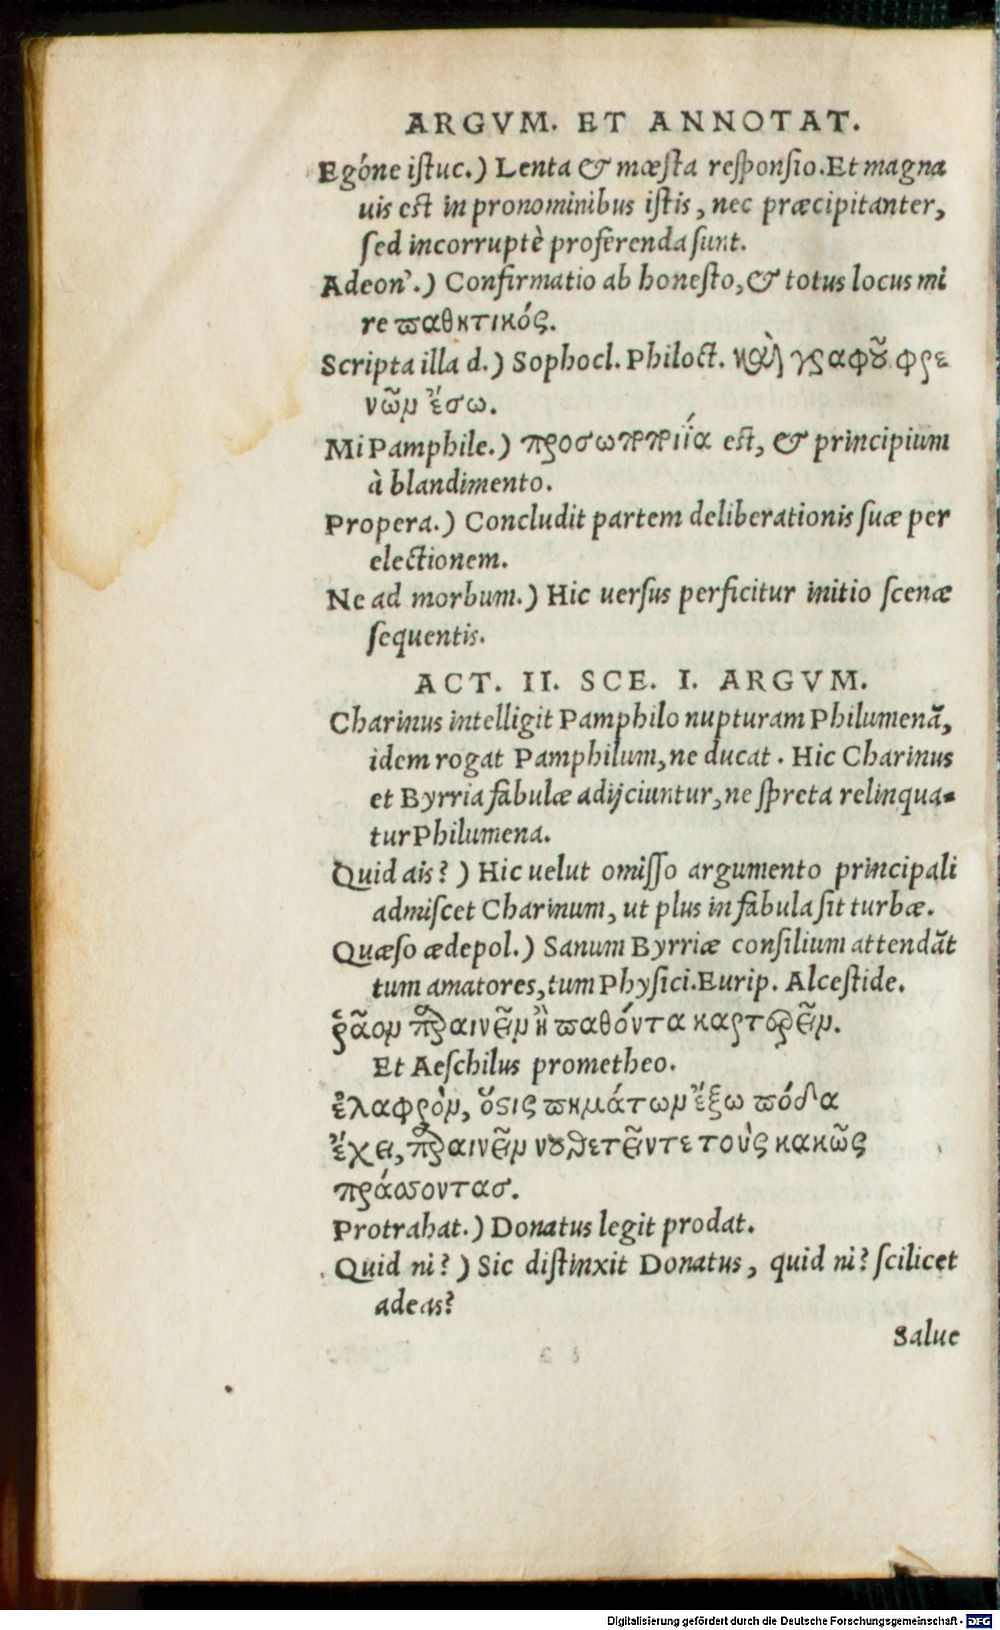 ARGVM. ET ANNOTAT.
Egóne iſtuc.) Lenta & mœſta reſponſio. Et magna
uis est in pronominibus iſtis, nec præcipitanter,
ſed incorruptè proferenda ſunt.
Adeon'.) Confirmatio ab honeſto, & totus locus mi
re παθητικός.
Scripta illa d.) Sophocl. Philoct. καὶ γράφου φρε
νῶν ἔσω.
Mi Pamphile.) est, & principium
à blandimento.
Propera.) Concludit partem deliberationis ſuæ per
electionem.
Ne ad morbum.) Hic uerſus perficitur initio ſcenæ
ſequentis.
ACT. II. SCE. I. ARGVM.
Charinus intelligit Pamphilo nupturam Philumenã,
idem rogat Pamphilum, ne ducat. Hic Charinus
et Byrria fabulæ adijciuntur, ne ſpreta relinqua-
tur Philumena.
Quid ais?) Hic uelut omiſſo argumento principali
admiſcet Charinum, ut plus in fabula ſit turbæ.
Quæſo ædepol.) Sanum Byrriæ conſilium attendãt
tum amatores, tum Phyſici. Eurip. Alceſtide.
ῥᾶον παραινεῖν ἢ παθόντα καρτερεῖν.
Et Aeſchilus prometheo.
ἐλαφρὸν, ὅστις πημάτων ἔξω πόδα
ἔχει, παραινεῖν νουθετεῖν τε τοὺς κακῶς
πράσσοντασ.
Protrahat.) Donatus legit prodat.
Quid ni?) Sic diſtinxit Donatus, quid ni? ſcilicet
adeas?
Salue
Digitalisierung gefördert durch die Deutsche Forschungsgemeinschaft - DFG